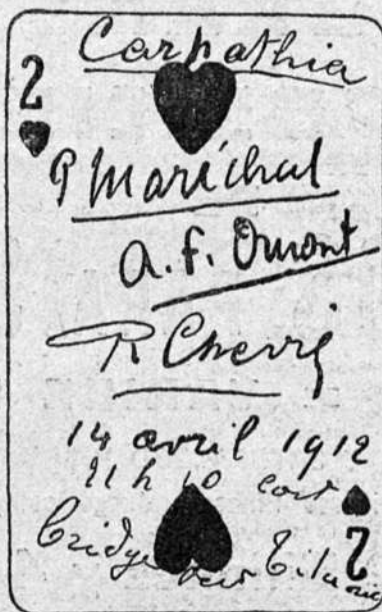 Carpathia
2
P Maréchal
A. F. Omont
R Chevré
14 avril 1912
11 h
bridge sur Titanic
2